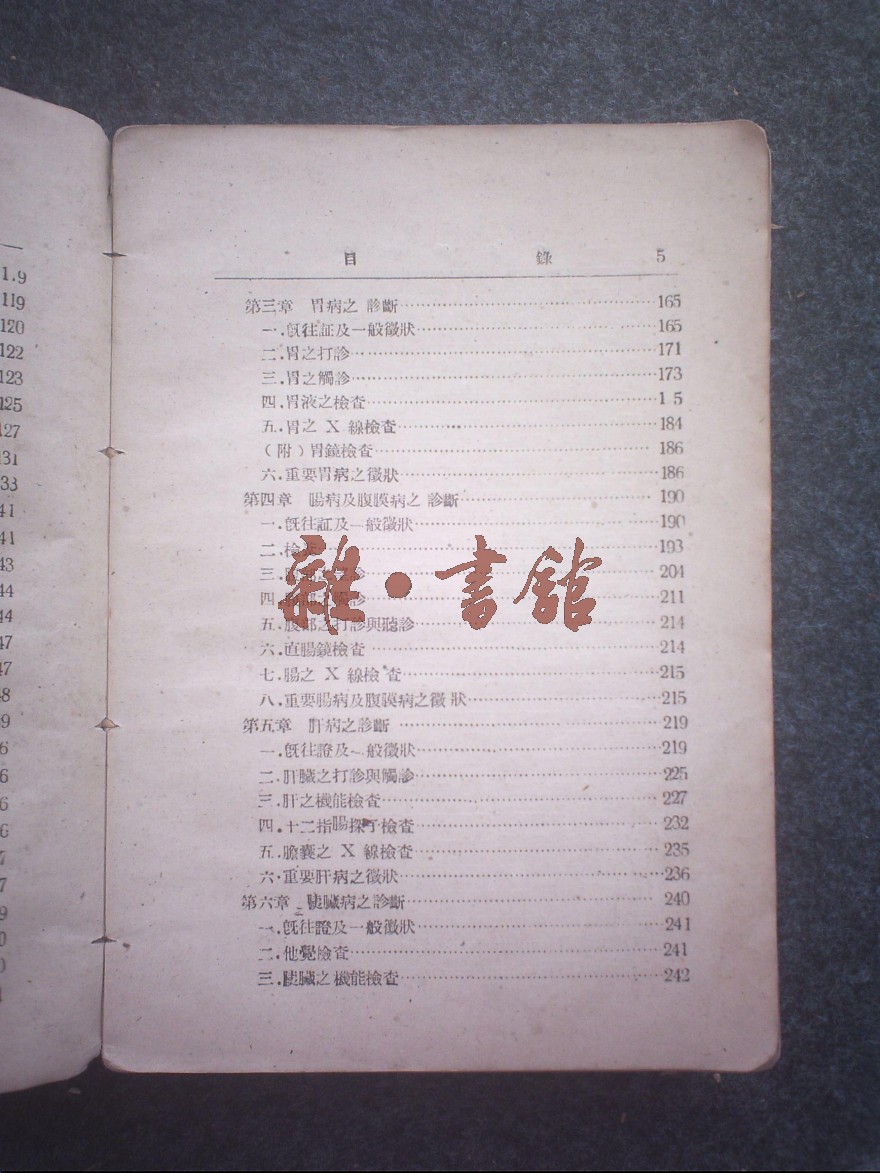 1.9
119
120
122
123
125
127
131
33
41
41
43
44
44
47
47
48
9
6
6
6
6
7
7
9
0
0
目 錄 5
第三章 胃病之 診斷 165
一.旣往証及一般徵狀 165
二.胃之打診 171
三.胃之觸診 173
四.胃液之檢查 1 5
五.胃之 X 線檢查 184
(附)胃鏡檢查 186
六.重要胃病之徵狀 186
第四章 腸病及腹膜病之 診斷 190
一.旣往証及一般徵狀 190
二.檢 193
三. 診 204
四. 診 211
五.腹部之打診與聽診 214
六.直腸鏡檢查 214
七.腸之 X 線檢 查 215
八.重要腸病及腹膜病之徵 狀 215
第五章 肝病之診斷 219
一.旣往證及一般徵狀 219
二.肝臟之打診與觸診 225
三.肝之機能檢查 227
四.十二指腸探子檢查 232
五.膽囊之 X 線檢查 235
六.重要肝病之徵狀 236
第六章 胰臟病之診斷 240
一.旣往證及一般徵狀 241
二.他覺檢查 241
三.胰臟之機能檢查 242
雜·書館